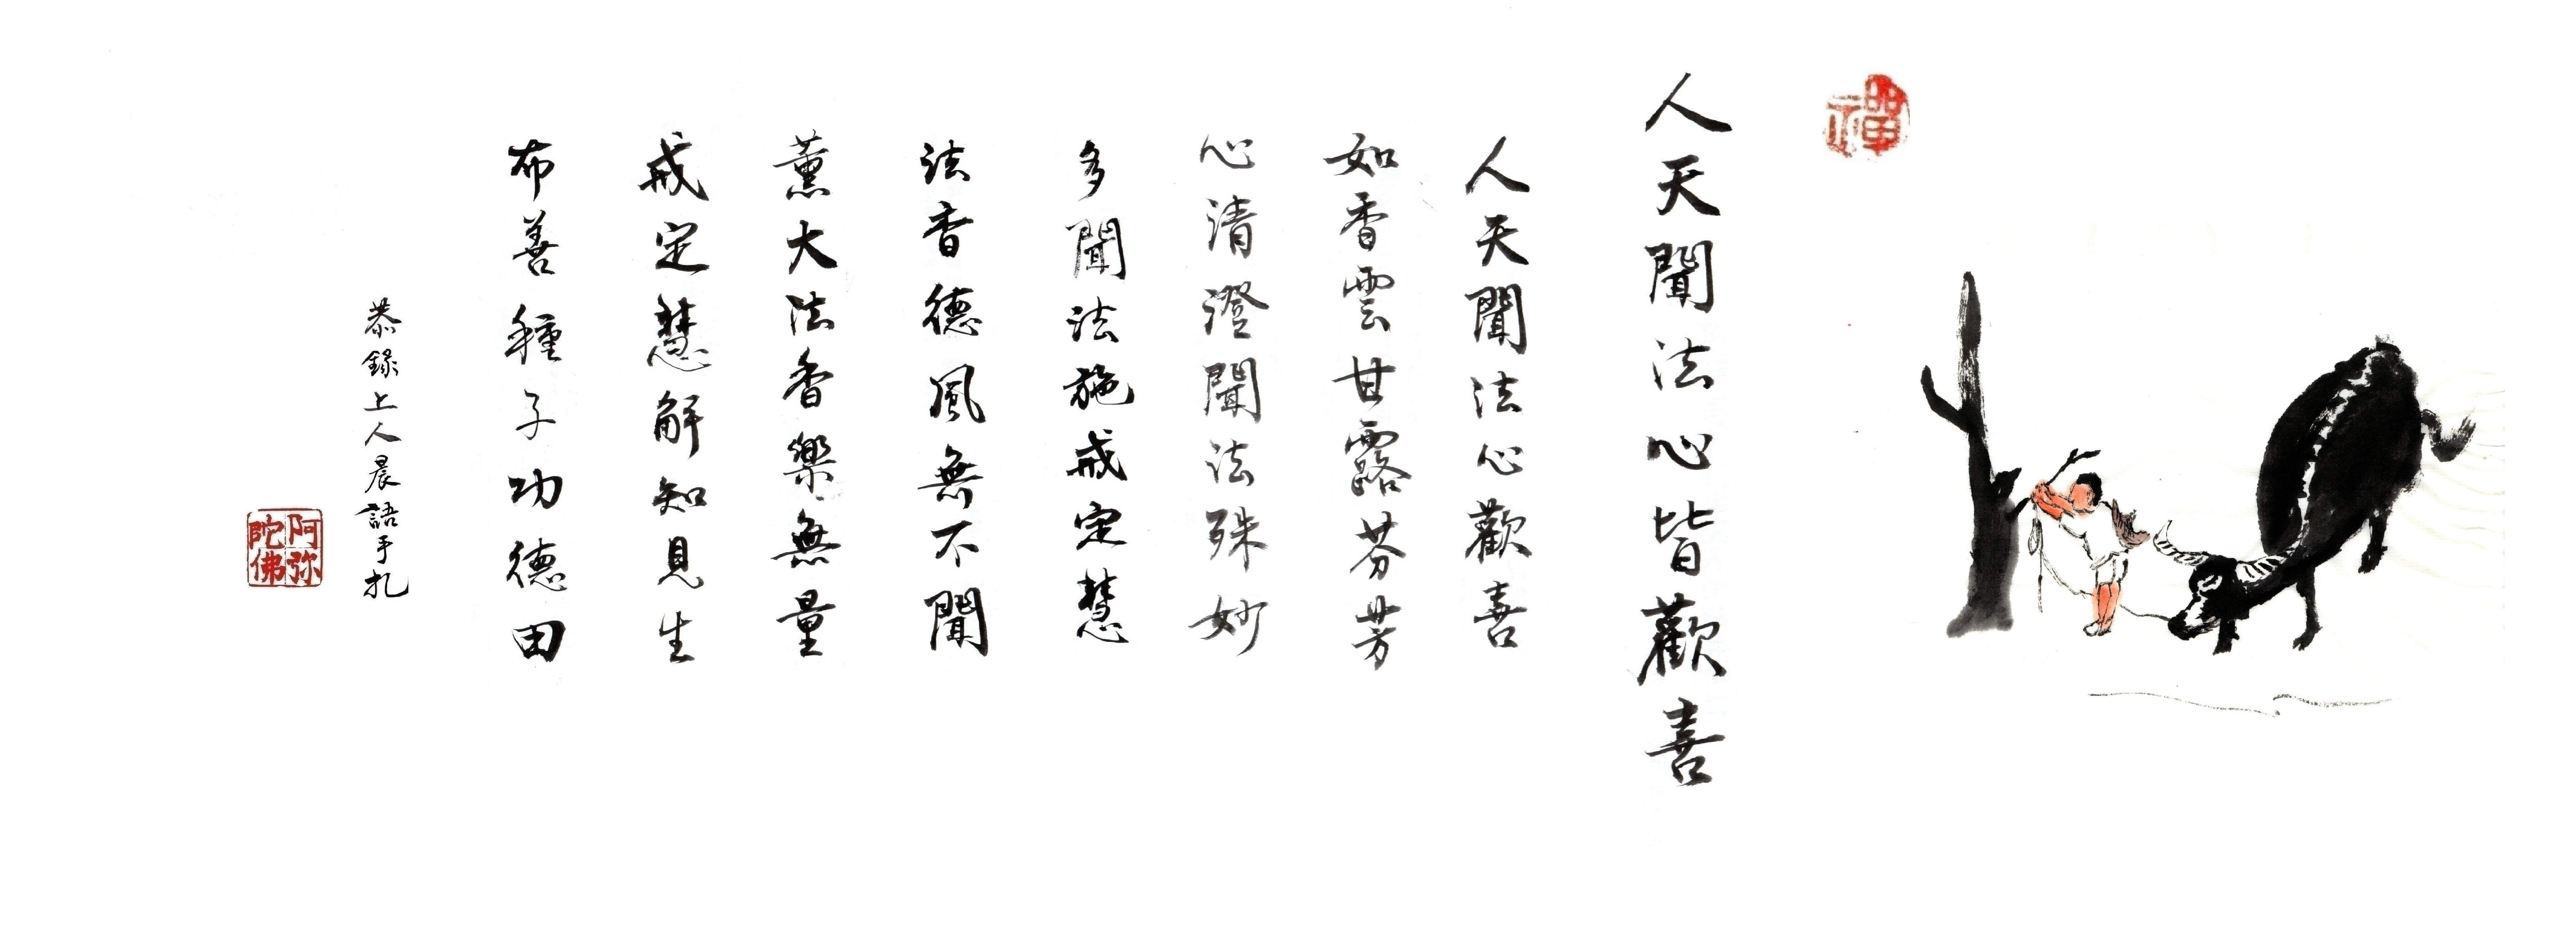 禪
人天聞法心皆歡喜
人天聞法心歡喜
如香雲甘露芬芳
心清澄聞法殊妙
多聞法施戒定慧
法香德風無不聞
薰大法香樂無量
戒定慧解知見生
布善種子功德田
恭錄上人晨語手札
阿弥陀佛